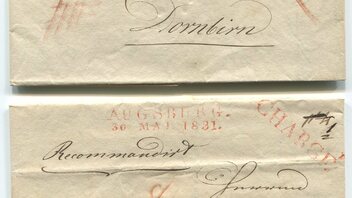 Dornbirn
AUGSBURG.
30 MAI 1831.
CHARGE
Recommandirt